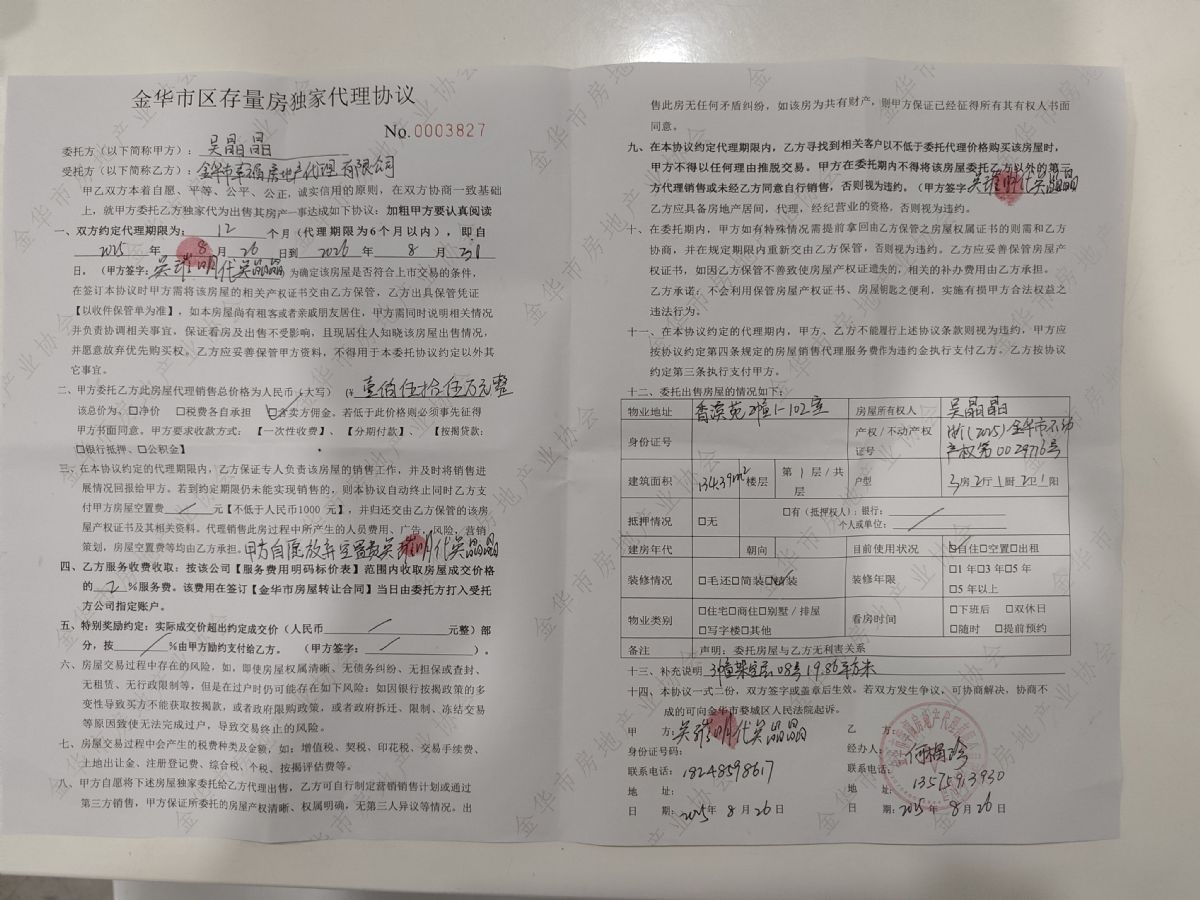 金华市区存量房独家代理协议
No.0003827
委托方（以下简称甲方）：吴晶晶
受托方（以下简称乙方）：金华市幸福房地产代理有限公司
甲乙双方本着自愿、平等、公平、公正，诚实信用的原则，在双方协商一致基础
上，就甲方委托乙方独家代为出售其房产一事达成如下协议：加粗甲方要认真阅读
一、双方约定代理期限为：12个月（代理期限为6个月以内），即自
2025年8月26日到2026年8月31
日。（甲方签字：吴 明代吴晶晶 为确定该房屋是否符合上市交易的条件，
在签订本协议时甲方需将该房屋的相关产权证书交由乙方保管，乙方出具保管凭证
【以收件保管单为准】，如本房屋尚有租客或者亲戚朋友居住，甲方需同时说明相关情况
并负责协调相关事宜。保证看房及出售不受影响，且现居住人知晓该房屋出售情况，
并愿意放弃优先购买权。乙方应妥善保管甲方资料，不得用于本委托协议约定以外其
它事宜。
二、甲方委托乙方此房屋代理销售总价格为人民币（大写）（¥ 壹佰伍拾伍万元整
该总价为，□净价 □税费各自承担 □含卖方佣金。若低于此价格则必须事先征得
甲方书面同意。甲方要求收款方式：【一次性收费】、【分期付款】、【按揭贷款：
□银行抵押、□公积金】
三、在本协议约定的代理期限内，乙方保证专人负责该房屋的销售工作，并及时将销售进
展情况回报给甲方。若到约定期限仍未能实现销售的，则本协议自动终止同时乙方支
付甲方房屋空置费 / 元【不低于人民币1000 元】，并归还交由乙方保管的该房
屋产权证书及其相关资料。代理销售此房过程中所产生的人员费用、广告，风险，营销
策划，房屋空置费等均由乙方承担。甲方自愿放弃空置费吴 明代吴晶晶
四、乙方服务收费收取：按该公司【服务费用明码标价表】范围内收取房屋成交价格
的 2 %服务费。该费用在签订【金华市房屋转让合同】当日由委托方打入受托
方公司指定账户。
五、特别奖励约定：实际成交价超出约定成交价（人民币 / 元整）部
分，按 / %由甲方励约支付给乙方。（甲方签字： / ）。
六、房屋交易过程中存在的风险，如，即使房屋权属清晰、无债务纠纷、无担保或查封、
无租赁、无行政限制等，但是在过户时仍可能存在如下风险：如因银行按揭政策的多
变性导致买方不能获取按揭款，或者政府限购政策，或者政府拆迁、限制、冻结交易
等原因致使无法完成过户，导致交易终止的风险。
七、房屋交易过程中会产生的税费种类及金额，如：增值税、契税、印花税、交易手续费、
土地出让金、注册登记费、综合税、个税、按揭评估费等。
八、甲方自愿将下述房屋独家委托给乙方代理出售，乙方可自行制定营销销售计划或通过
第三方销售，甲方保证所委托的房屋产权清晰、权属明确，无第三人异议等情况。出
售此房无任何矛盾纠纷，如该房为共有财产，则甲方保证已经征得所有其有权人书面
同意。
九、在本协议约定代理期限内，乙方寻找到相关客户以不低于委托代理价格购买该房屋时，
甲方不得以任何理由推脱交易。甲方在委托期内不得将该房屋委托乙方以外的第三
方代理销售或未经乙方同意自行销售，否则视为违约。（甲方签字吴 明代吴晶晶
乙方应具备房地产居间，代理，经纪营业的资格，否则视为违约。
十、在委托期内，甲方如有特殊情况需提前拿回由乙方保管之房屋权属证书的则需和乙方
协商，并在规定期限内重新交由乙方保管，否则视为违约。乙方应妥善保管房屋产
权证书，如因乙方保管不善致使房屋产权证遗失的，相关的补办费用由乙方承担。
乙方承诺：不会利用保管房屋产权证书、房屋钥匙之便利，实施有损甲方合法权益之
违法行为。
十一、在本协议约定的代理期内，甲方、乙方不能履行上述协议条款则视为违约，甲方应
按协议约定第四条规定的房屋销售代理服务费作为违约金执行支付乙方。乙方按协议
约定第三条执行支付甲方。
十二、委托出售房屋的情况如下：
物业地址 香溪苑2幢1-102室 房屋所有权人 吴晶晶
身份证号 产权/不动产权证号 浙(2025)金华市不动产权第0029776号
建筑面积 134.39m² 楼层 第 1 层/共 层 户型 3房2厅1厨2卫1阳
抵押情况 □无 □有（抵押权人）；银行：
个人或单位： /
建房年代 朝向 目前使用状况 □自住□空置□出租
装修情况 □毛还□简装□精装 装修年限 □1年□3年□5年
□5年以上
物业类别 □住宅□商住□别墅/排屋
□写字楼□其他 看房时间 □下班后 □双休日
□随时 □提前预约
备注 声明：委托房屋与乙方无利害关系
十三、补充说明 3幢架空层08号19.86平方米
十四、本协议一式二份，双方签字或盖章后生效。若双方发生争议，可协商解决，协商不
成的可向金华市婺城区人民法院起诉。
甲 方：吴 明代吴晶晶 乙 方：
身份证号码： 经办人：何
联系电话：18248598617 联系电话：13575913930
地 址： 地 址：
日 期：2025年8月26日 日 期：2025年8月26日